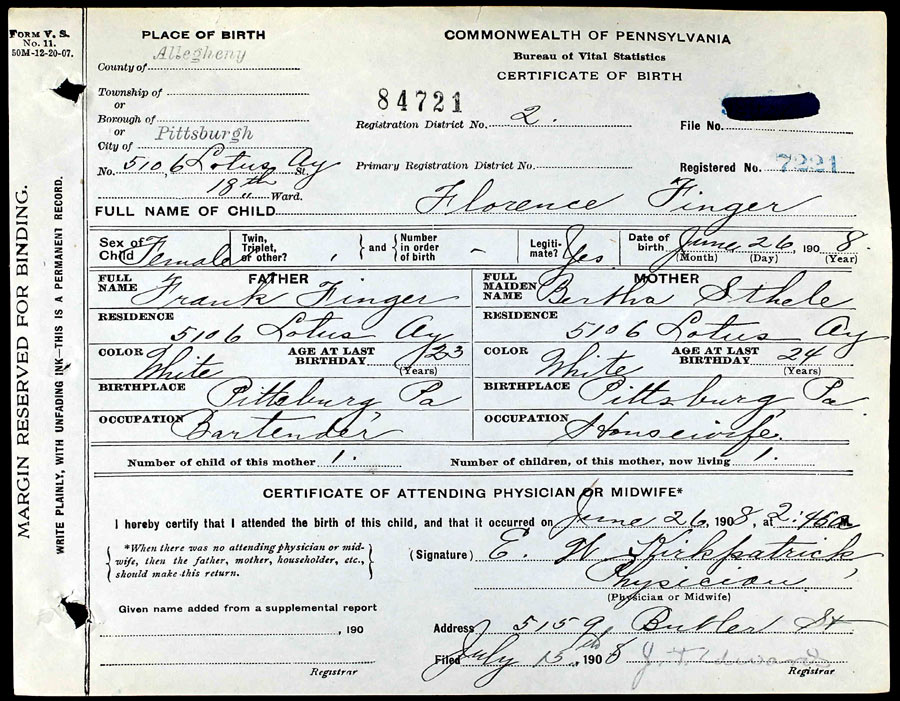 FORM V. S.
No. 11.
50M-12-20-07.
MARGIN RESERVED FOR BINDING.
WRITE PLAINLY, WITH UNFADING INK—THIS IS A PERMANENT RECORD.
PLACE OF BIRTH
County of Allegheny
Township of
or
Borough of
or
City of Pittsburgh
No. 5106 Lotus Ay St.
18th Ward.
COMMONWEALTH OF PENNSYLVANIA
Bureau of Vital Statistics
CERTIFICATE OF BIRTH
84721
Registration District No. 2.
File No.
Primary Registration District No.
Registered No. 7221
FULL NAME OF CHILD Florence Finger
Sex of Child Female
Twin, Triplet, or other?
and
Number in order of birth —
Legitimate? Yes
Date of birth June 26, 1908.
(Month) (Day) (Year)
FATHER
FULL NAME Frank Finger
RESIDENCE 5106 Lotus Ay
COLOR White
AGE AT LAST BIRTHDAY 23
(Years)
BIRTHPLACE Pittsburg, Pa
OCCUPATION Bartender
MOTHER
FULL MAIDEN NAME Bertha Sthele
RESIDENCE 5106 Lotus Ay
COLOR White
AGE AT LAST BIRTHDAY 24
(Years)
BIRTHPLACE Pittsburg, Pa
OCCUPATION Housewife.
Number of child of this mother 1.
Number of children, of this mother, now living 1.
CERTIFICATE OF ATTENDING PHYSICIAN OR MIDWIFE*
I hereby certify that I attended the birth of this child, and that it occurred on June 26, 1908, at 2:45 a M.
*When there was no attending physician or midwife, then the father, mother, householder, etc., should make this return.
(Signature) E. W. Kirkpatrick,
Physician
(Physician or Midwife)
Given name added from a supplemental report
, 190
Registrar
Address 5159 Butler St
Filed July 15th, 1908
J. F. Edwards
Registrar